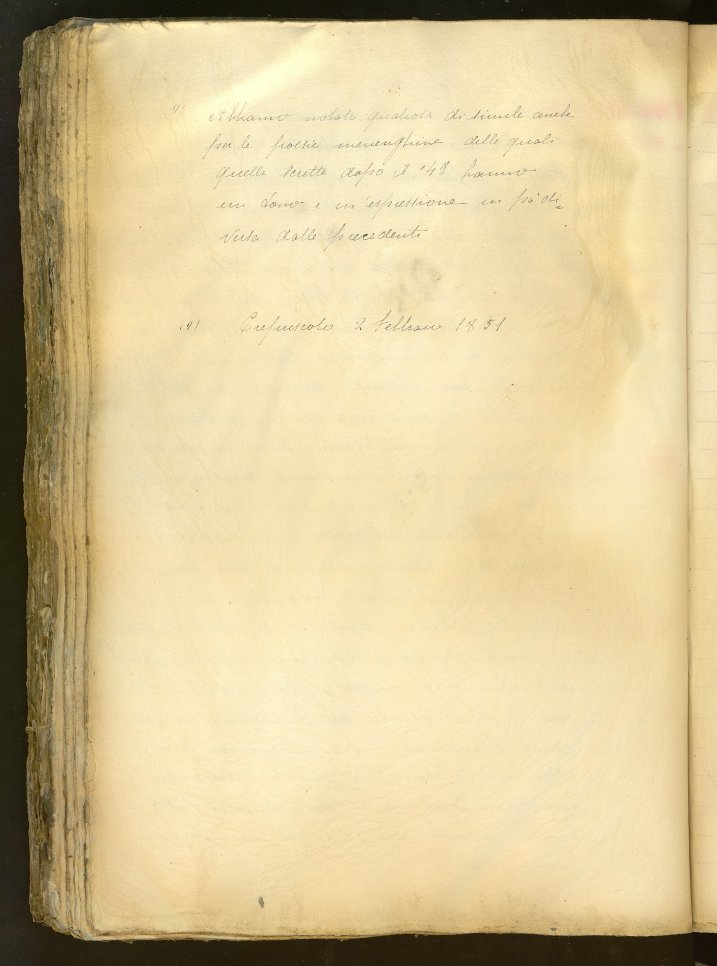 1) Abbiamo notato qualcosa di simile anche
per le poesie meneghine, delle quali
quelle scritte dopo il '48 hanno
un tono e un'espressione un po' di=
versa dalle precedenti
(2) Crepuscolo 2 Febbraio 1851